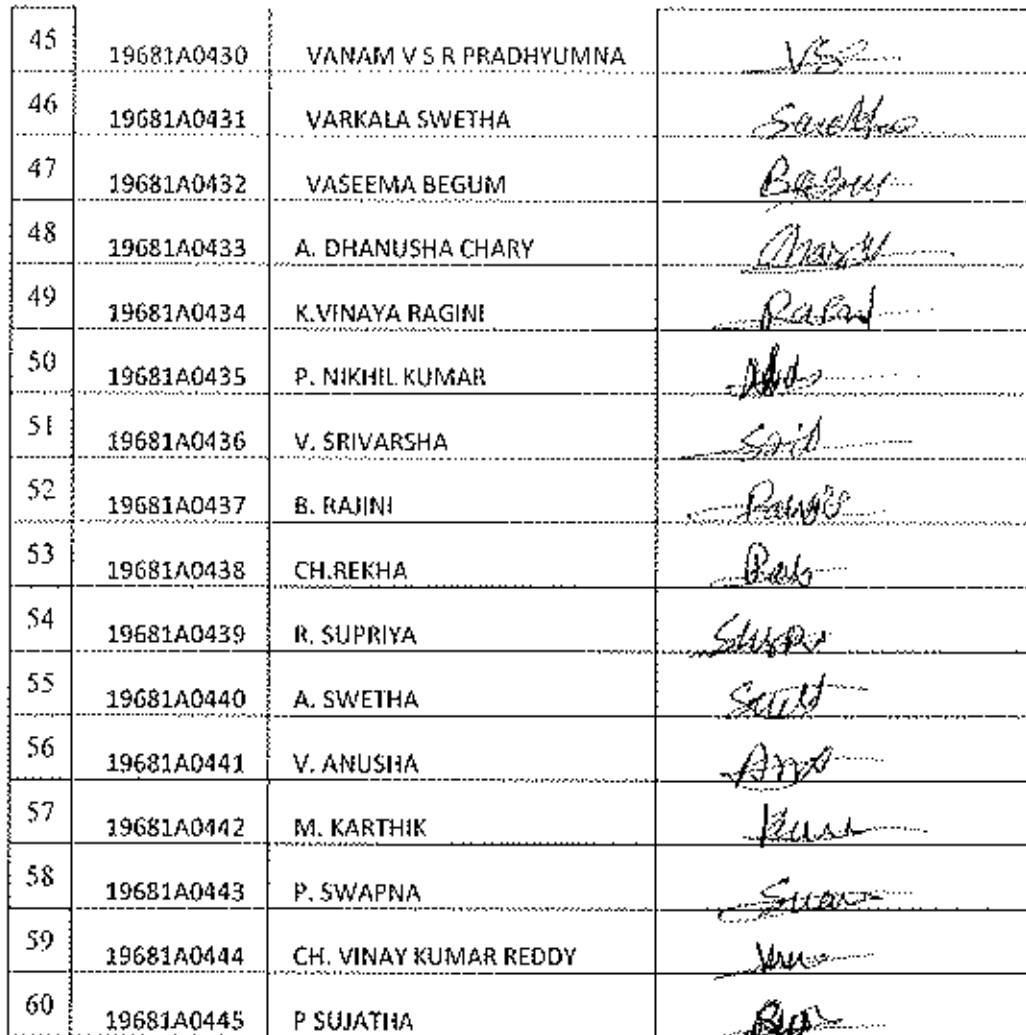 45 19681A0430 VANAM V S R PRADHYUMNA VS
46 19681A0431 VARKALA SWETHA Swetha
47 19681A0432 VASEEMA BEGUM Begum
48 19681A0433 A. DHANUSHA CHARY
49 19681A0434 K.VINAYA RAGINI
50 19681A0435 P. NIKHIL KUMAR
51 19681A0436 V. SRIVARSHA
52 19681A0437 B. RAJINI
53 19681A0438 CH.REKHA
54 19681A0439 R. SUPRIYA
55 19681A0440 A. SWETHA
56 19681A0441 V. ANUSHA
57 19681A0442 M. KARTHIK
58 19681A0443 P. SWAPNA
59 19681A0444 CH. VINAY KUMAR REDDY
60 19681A0445 P SUJATHA